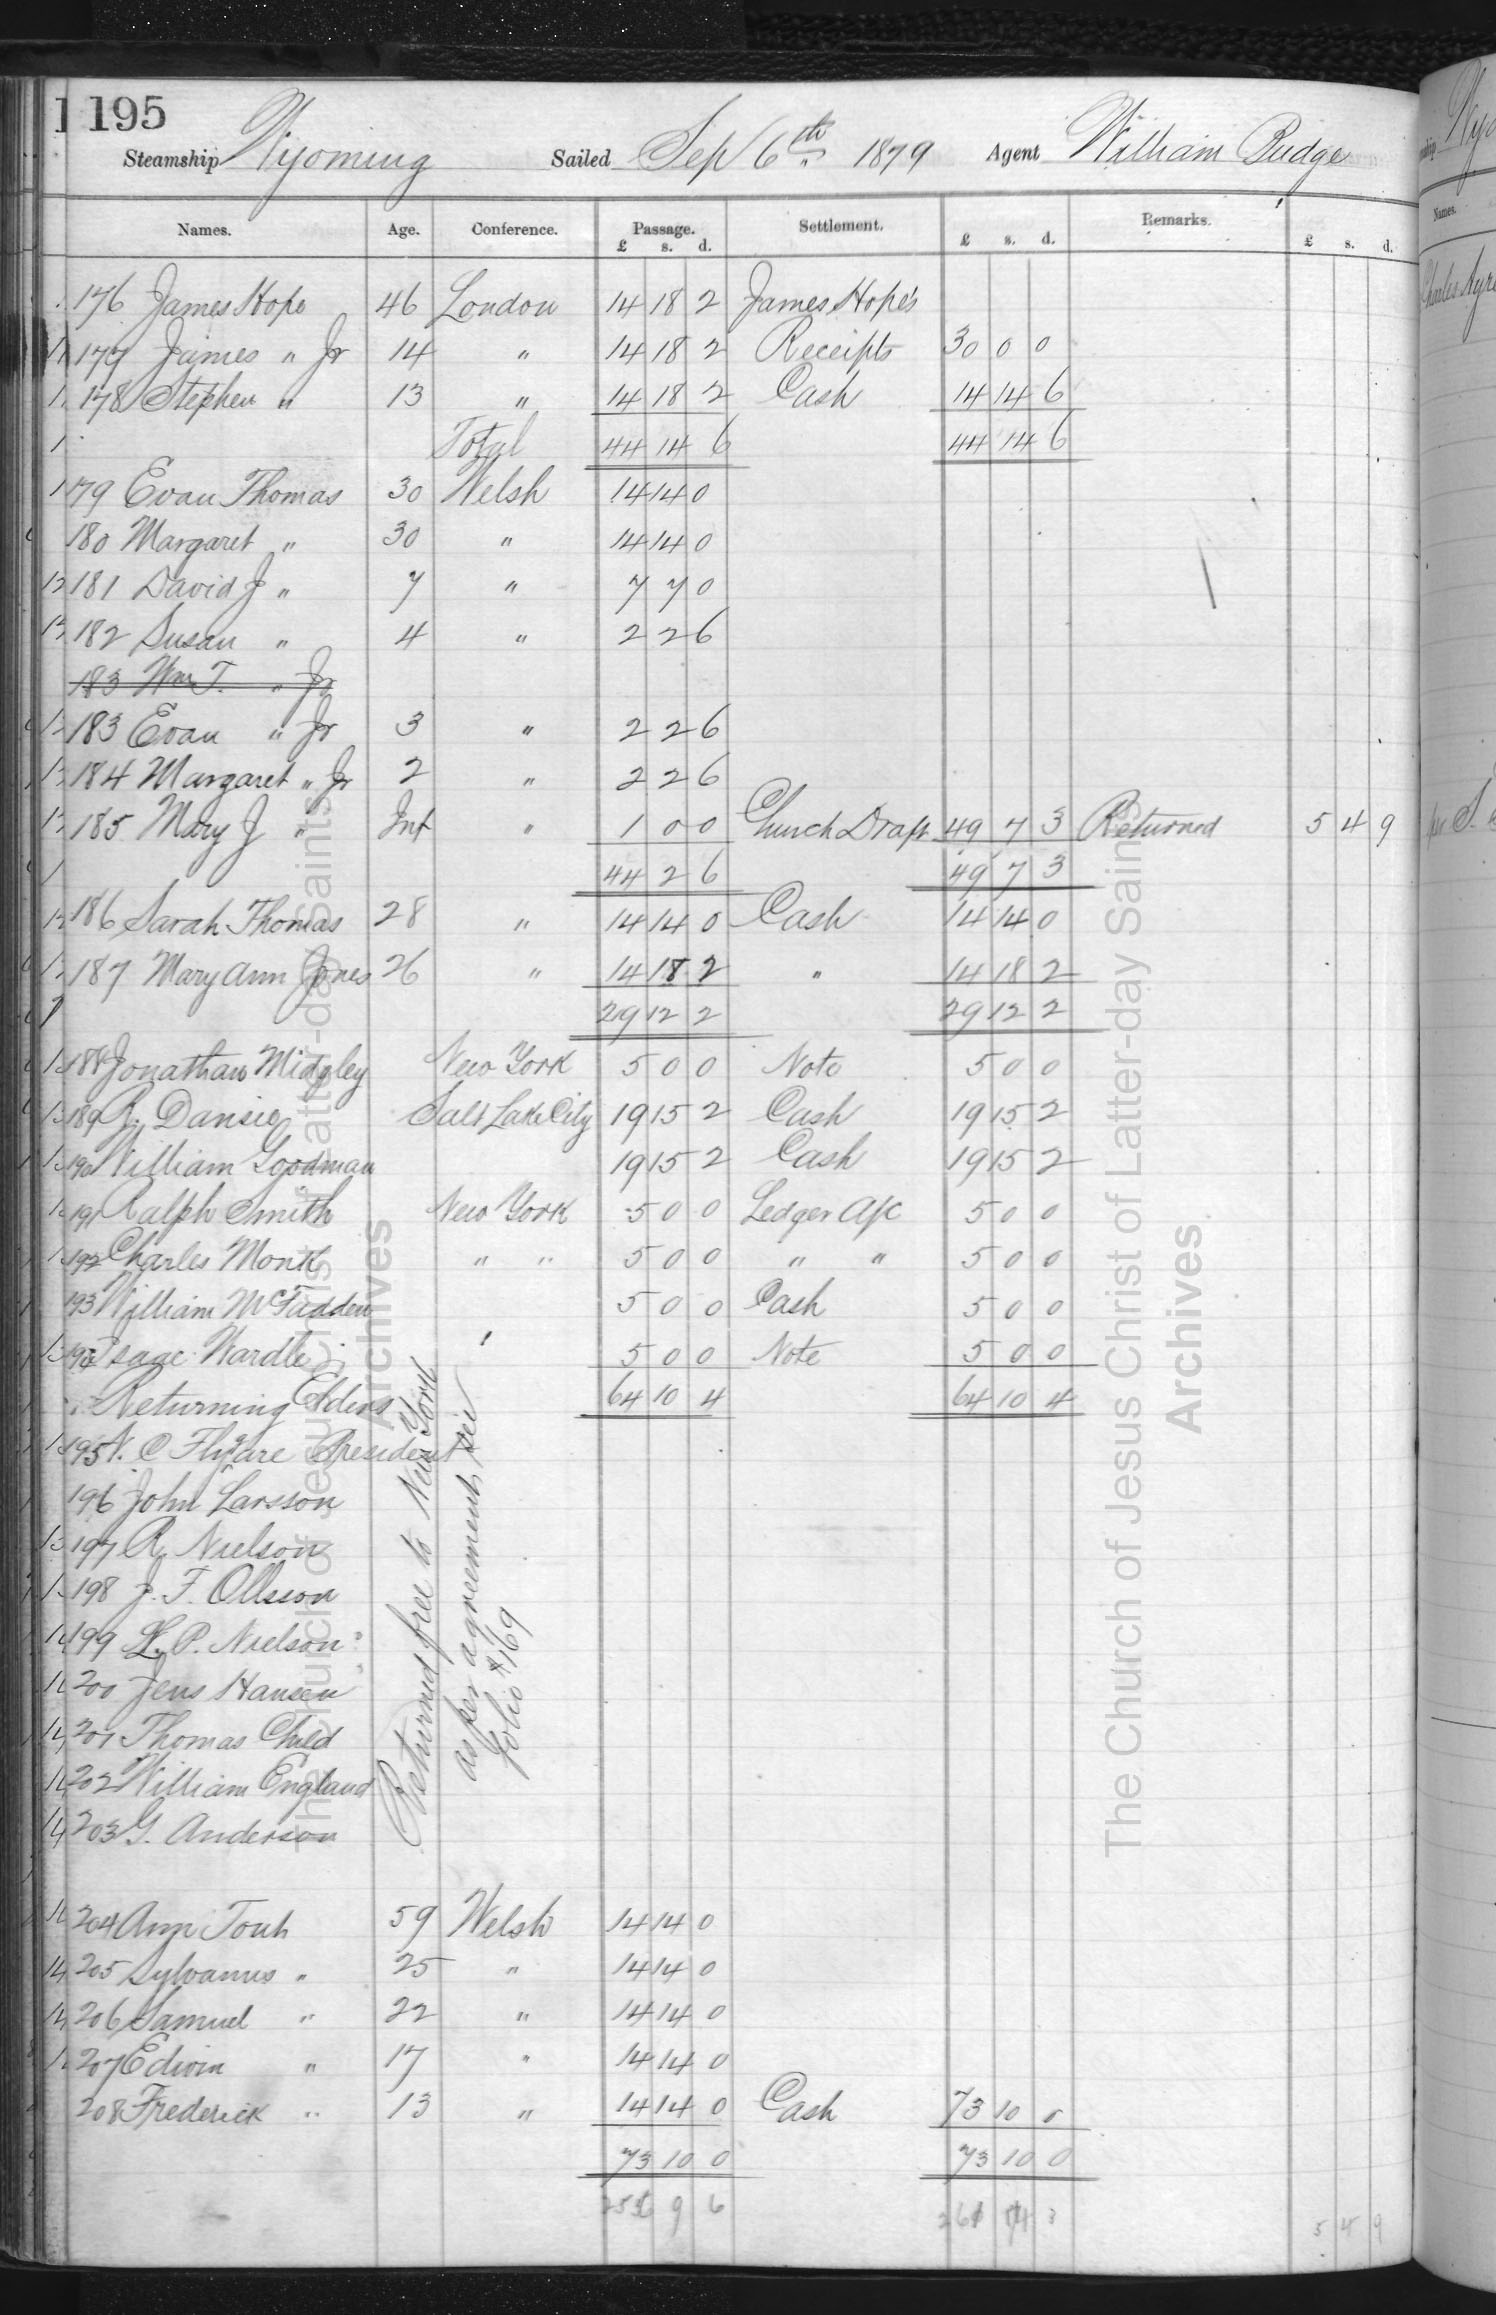 195
Steamship Wyoming Sailed Sep 6th 1879 Agent William Budge
Names. Age. Conference. Passage. Settlement. Remarks.
£ s. d. £ s. d. £ s. d.
176 James Hope 46 London 14 18 2 James Hope's
177 James " Jr 14 " 14 18 2 Receipts 30 0 0
178 Stephen " 13 " 14 18 2 Cash 14 14 6
Total 44 14 6 44 14 6
179 Evan Thomas 30 Welsh 14 14 0
180 Margaret " 30 " 14 14 0
181 David J " 7 " 7 7 0
182 Susan " 4 " 2 2 6
183 Wm T. " Jr
183 Evan " Jr 3 " 2 2 6
184 Margaret " Jr 2 " 2 2 6
185 Mary J " Inf " 1 0 0 Church Draft 49 7 3 Returned 5 4 9
44 2 6 49 7 3
186 Sarah Thomas 28 " 14 14 0 Cash 14 14 0
187 Mary Ann Jones 26 " 14 18 2 " 14 18 2
29 12 2 29 12 2
188 Jonathan Midgley New York 5 0 0 Note 5 0 0
189 R. Dansie Salt Lake City 19 15 2 Cash 19 15 2
190 William Goodman 19 15 2 Cash 19 15 2
191 Ralph Smith New York 5 0 0 Ledger A/c 5 0 0
192 Charles Monk " " 5 0 0 " " 5 0 0
193 William McFadden 5 0 0 Cash 5 0 0
194 Isaac Wardle 5 0 0 Note 5 0 0
Returning Elders 64 10 4 64 10 4
195 N. C Flygare President
196 John Larsson
197 R. Nielson
198 J. F. Ollsson
199 L. P. Nielson
200 Jens Hansen
201 Thomas Child
202 William England
203 G. Anderson
Returned free to New York
as per agreement see
folio 169
204 Ann Touh 59 Welsh 14 14 0
205 Sylvanus " 25 " 14 14 0
206 Samuel " 22 " 14 14 0
207 Edwin " 17 " 14 14 0
208 Frederick " 13 " 14 14 0 Cash 73 10 0
73 10 0 73 10 0
9 6 5 4 9
The Church of Jesus Christ of Latter-day Saints
Archives
The Church of Jesus Christ of Latter-day Saints
Archives
Names.